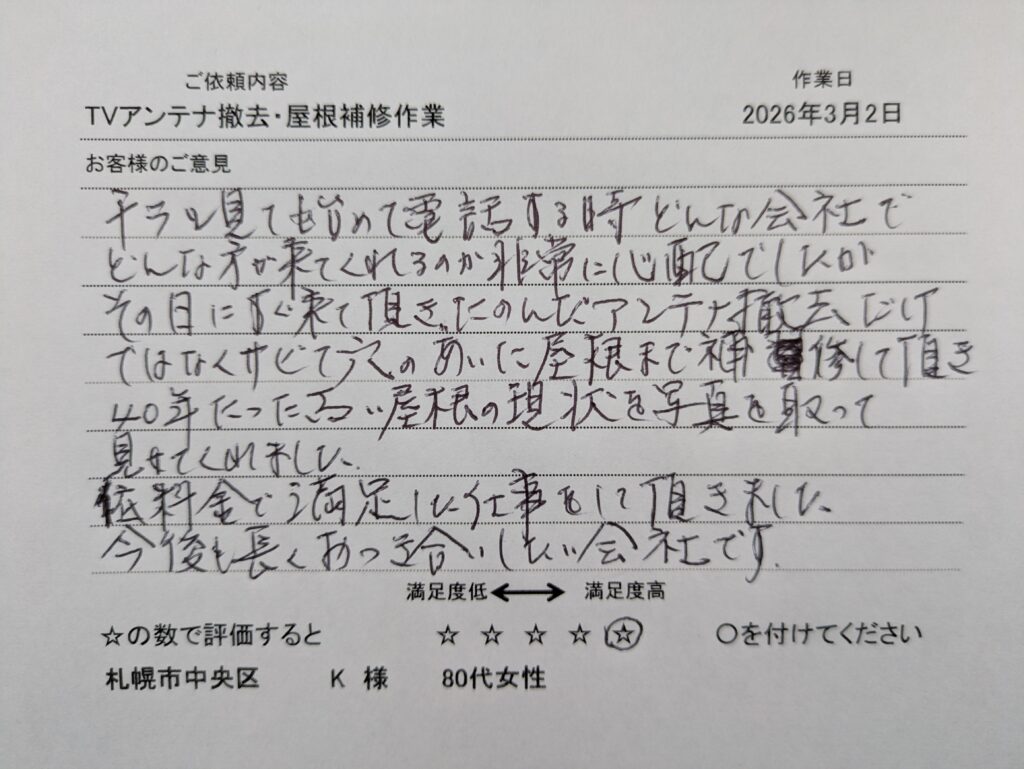 ご依頼内容 作業日
TVアンテナ撤去・屋根補修作業 2026年3月2日
お客様のご意見
チラシ見て始めて電話する時どんな会社で
どんな方が来てくれるのか非常に心配でしたが
その日にすぐ来て頂きアンテナ撤去だけ
ではなくサビて穴のあいた屋根まで補修して頂き
40年たった高い屋根の現状を写真を取って
見せてくれました、
低料金で満足した仕事をして頂きました、
今後も長くおつき合いしたい会社です.
満足度低 ⟷ 満足度高
☆の数で評価すると ☆ ☆ ☆ ☆ ☆ 〇を付けてください
札幌市中央区 K 様 80代女性